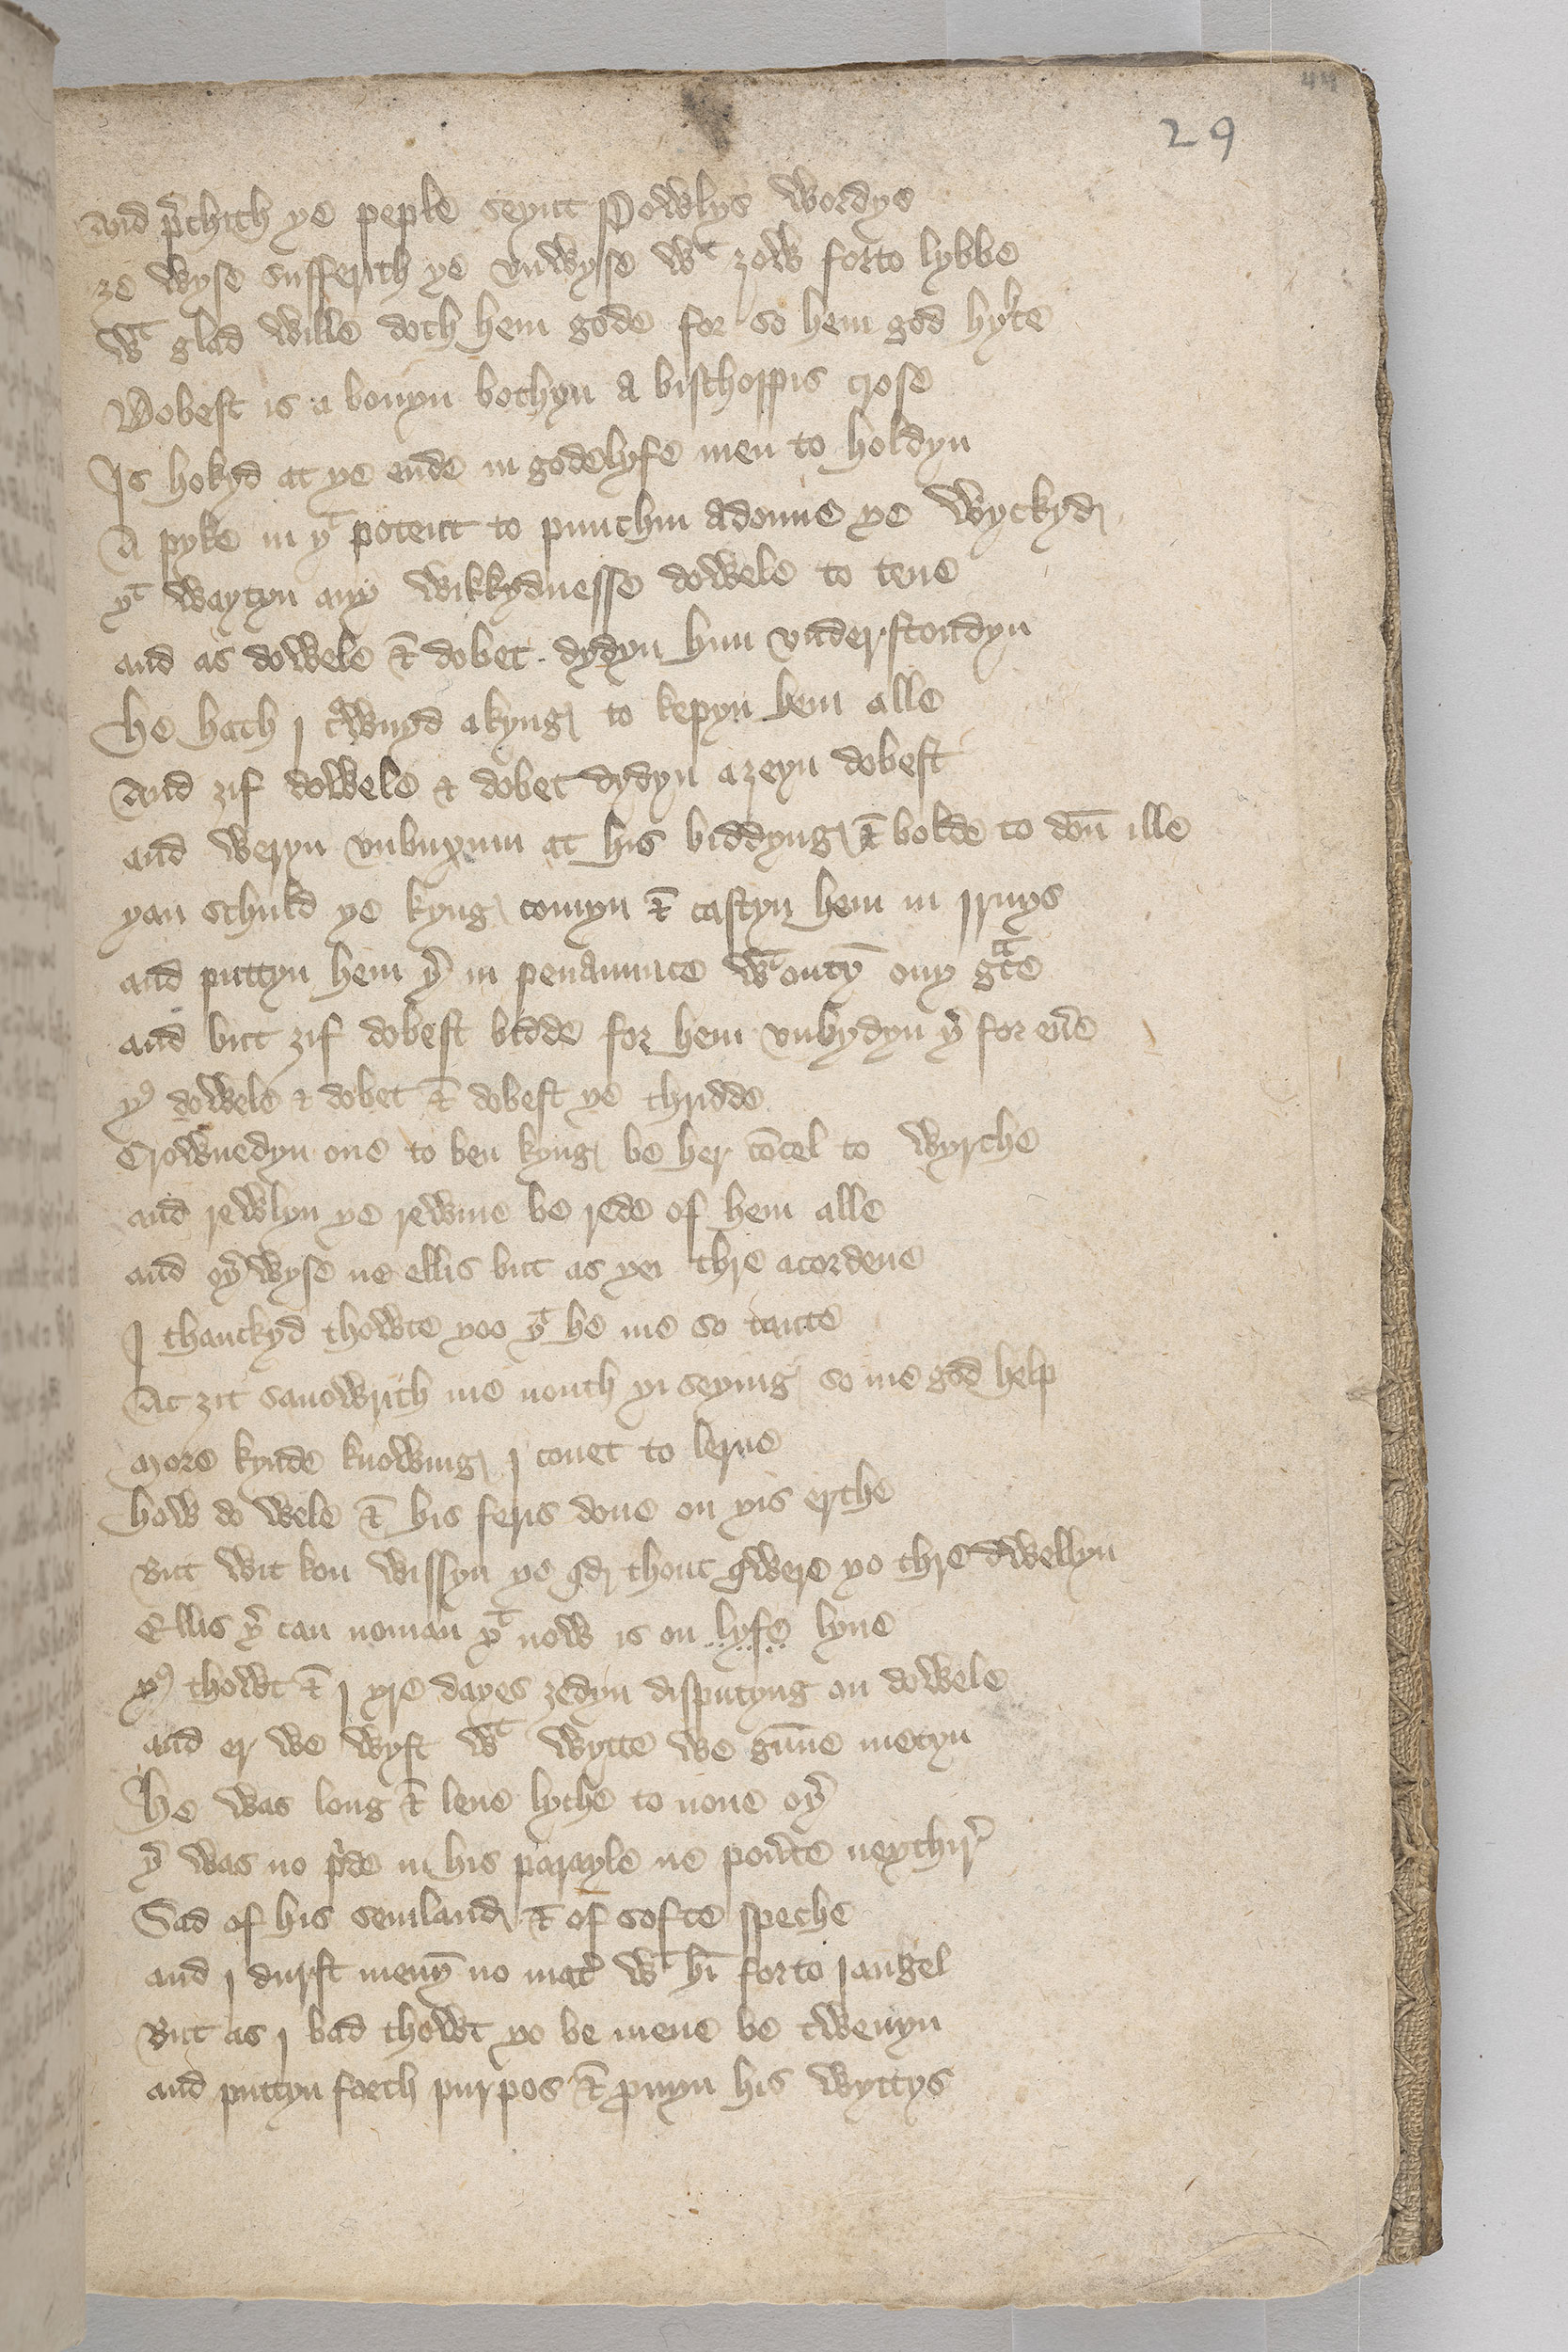 44
29
And p͛chith ye peple seynt Powlys wordys
ze wyse suffer͛ith ye vnwyse wͭ zow forto lybbe
wͭ glad wille doth hem gode for so hem god hyte
Dobest is a bouyn bothyn A bisschoppis crose
Is hokyd at ye ende in gode lyfe men to holdyn
A pyke in yͭ potent to punchin Adoune ye wyckyd
yͭ waytyn any wikkydnesse dowele to tene
and as dowele & dobet dydyn him vnderstondyn
he hath I cͦwnyd a kyng to kepyn hem alle
And zif dowele & dobet dydyn azeyn dobest
and weryn vnbuxum at his biddyng & bolde to don̄ ille
yan schuld ye kyng comyn & castyn hem in Irnys
and puttyn hem y͛ in penaunce wͭ outȳ ony gͣce
and but zif dobest bidde for hem vnbydyn y͛ for eu͛e
yꝰ dowele & dobet & dobest ye thridde
Crownedyn one to ben kyng be her cōcel to wyrche
and rewlyn ye rewme be rede of hem alle
and oy͛ wyse ne ellis but as yei thre acordene
I thanckyd thowte yoo yͭ he me so taute
At zit sauowrith me nouth yi seying so me god help
More kynde knowing I couet to lerne
how do wele & his feris done on yis erthe
But wit kon wissyn ye qd thout qwere yo thre dwellyn
Ellis y͛ can noman yͭ now is on lyfe lyue
yꝰ thowt & I yre dayes zedyn disputyng on dowele
and er we wyst wͭ wytte we gūne metyn
he was long & lene lyche to none oy͛
y͛ was no pͥde in his parayle ne pou͛te neythir͛
Sad of his semland & of softe speche
and I durst meuȳ no mat͛ wͭ hī forto Iangel
But as I bad thowt yo be mene be twenyn
and puttyn forth purpos & p̲uyn his wyttys